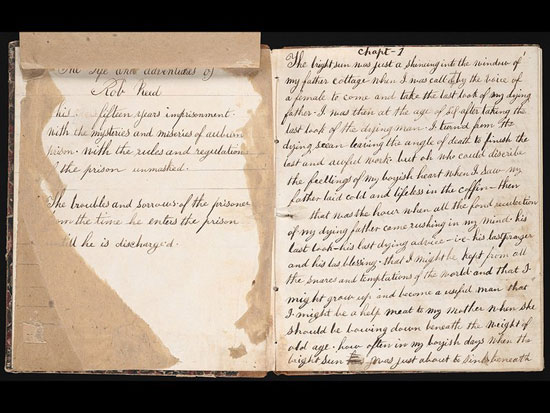 The Life and adventures of
Rob Reed
his fifteen years imprisonment
With the mysteries and miseries of auburn
prison. With the rules and regulations
of the prison unmasked.
The troubles and sorrows of the prisoner
from the time he enters the prison
untill he is discharged.
Chapt-1
The bright sun was just a shineing into the window of
my father cottage when I was calld by the voice of
a female to come and take the last look of my dying
father. I was then at the age of after taking the
last look of the dying man. I turnd from the
dying scean leaveing the angle of death to finish the
last and awful work. but oh who could discribe
the feellings of my boyish heart when I saw my
father laid cold and lifeless in the coffin. then
that was the hour when all the fond recolection
of my dying father come rushing in my mind. his
last look - his last dying advice - his last prayer
and his las blessing. that I might be kept from all
the snares and temptations of the world and that I
might grow up and become a useful man that
I might be a help meat to my mother when she
should be bowing down beneath the weight of
old age. how often in my boyish days when the
bright sun was just about to sink beneath